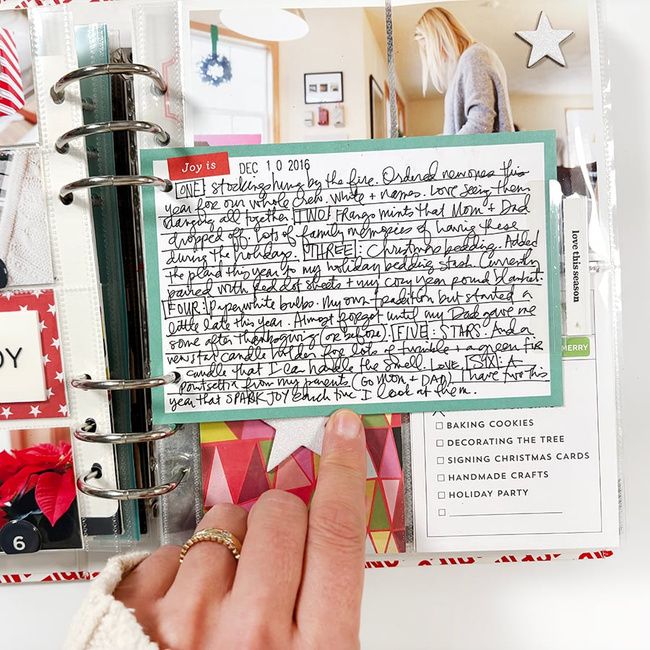 Joy is DEC 10 2016
ONE stockings hung by the fire. Ordered new ones this
year for our whole crew. White + names. Love seeing them
hanging all together. TWO Frango mints that Mom + Dad
dropped off. Lots of family memories of having these
during the holidays. THREE: Christmas bedding. Added
the plaid this year to my holiday bedding stash. Currently
paired with red dot sheets + my cozy year round blanket.
FOUR: Paperwhite bulbs. My own tradition but started a
little late this year. Almost forgot until my Dad gave me
some after thanksgiving (or before). FIVE: STARS. And a
star candle holder for lots of twinkle + a green fir
candle that I can handle the smell. Love. SIX: A
poinsettia from my parents (Go Mom + Dad). I have five this
year that SPARK JOY each time I look at them.
love this season
MERRY
BAKING COOKIES
DECORATING THE TREE
SIGNING CHRISTMAS CARDS
HANDMADE CRAFTS
HOLIDAY PARTY
OY
6